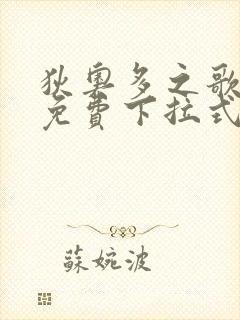 狄奧多之歌
免費下拉式
蘇婉波